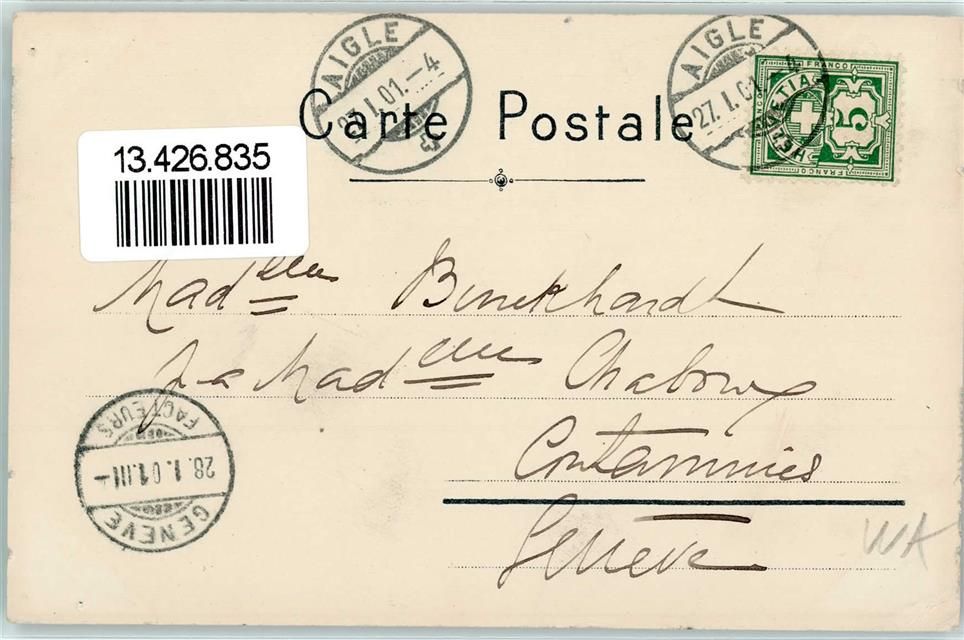 AIGLE
27. I. 01. – 4
AIGLE
27. I. 01. – 4
FRANCO
HELVETIA
5
FRANCO
Carte Postale
13.426.835
Madelle Burckhardt
p a Madelle
Contamines
Genève
GENÈVE
28. 1. 01. III –
FACTEURS
WA